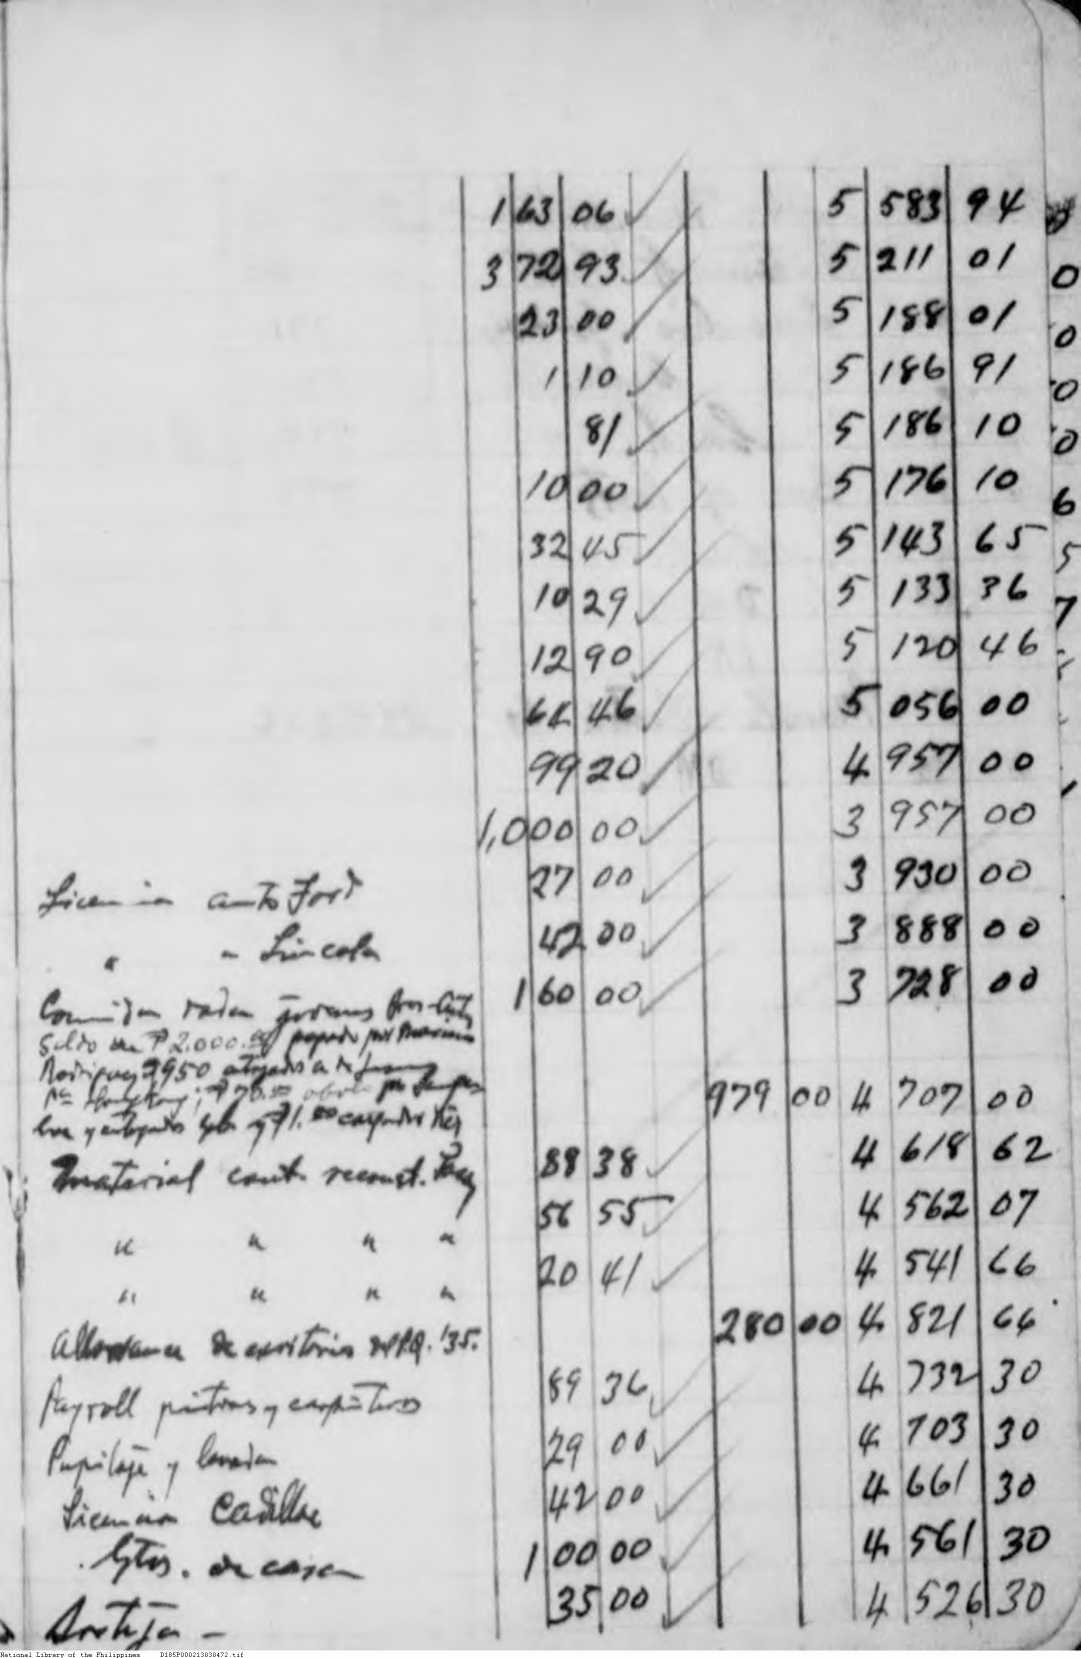 1 63 06 5 583 94
3 72 93 5 211 01
23 00 5 188 01
1 10 5 186 91
81 5 186 10
10 00 5 176 10
32 45 5 143 65
10 29 5 133 36
12 90 5 120 46
64 46 5 056 00
99 20 4 957 00
1,000 00 3 957 00
Licencia auto Ford 27 00 3 930 00
" " Lincoln 42 00 3 888 00
1 60 00 3 728 00
Saldo de ₱2.000.00 pagado por
Rodriguez ₱950
979 00 4 707 00
y ₱1.00
Material cont. reconst. 88 38 4 618 62
" " " " 56 55 4 562 07
" " " " 20 41 4 541 66
Allowance de escritorio '35. 280 00 4 821 66
Payroll pintores y carpinteros 89 36 4 732 30
Pupilaje y lavado 29 00 4 703 30
Licencia Cadillac 42 00 4 661 30
Gtos. de casa 1 00 00 4 561 30
35 00 4 526 30
National Library of the Philippines D185P000213830472.tif